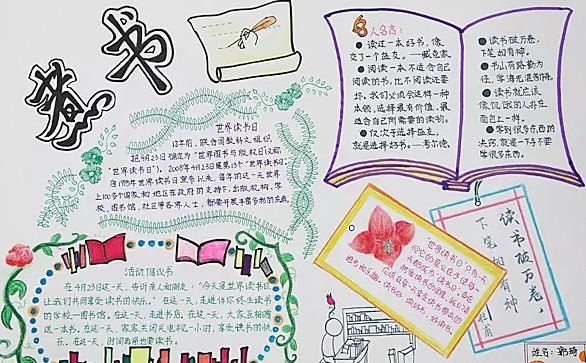 书香
名人名言:
读过一本好书,像
交了一个益友。——臧克家
阅读一本不适合自己
阅读的书,比不阅读还要
坏。我们必须会这样一种
本领,选择最有价值、最
适合自己所需要的读物。
仅次于选择益友,
就是选择好书。——考尔德
读书破万卷,
下笔如有神。
书山有路勤为
径,学海无涯苦作舟。
读书就应该
像饥饿的人扑在
面包上一样。
学到很多东西的
决窍,就是一下子不要
学很多东西。
世界读书日
13年前,联合国教科文组织
把4月23日确定为“世界图书与版权日(又称
“世界读书日)。2008年4月23日是第13个“世界读书日。
自1995年世界读书日宣布以来,每年的这一天世界
上100多个国家和地区在政府的支持下,出版机构、学
校、图书馆、社区等各界人士,都要开展丰富多彩的
活动倡议书
在4月23日这一天,告诉亲人和朋友:“今天是世界读书日
让我们共同享受读书的快乐。”在这一天,走进伴你终生读书
的学校—图书馆。在这一天,走进书店。在这一天,大家互相赠
送一本书。在这一天,家家关闭关电视一小时,享受读书的快
乐。在这一天,
“世界读书日”只有一天
读书破万卷,
下笔如有神
杜甫
姓名:郭琦